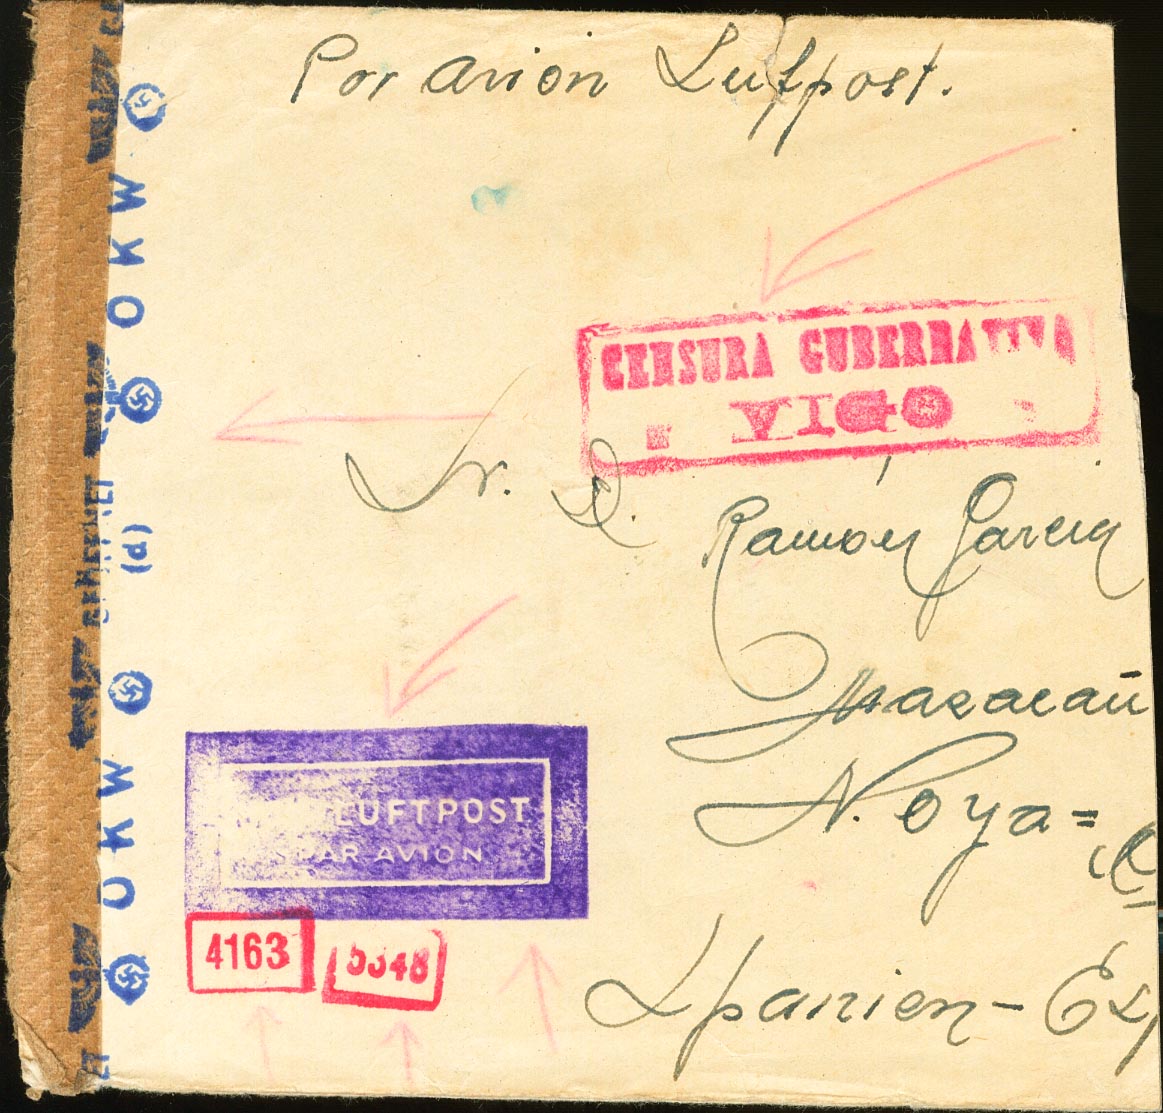 Por avion Luftpost.
CENSURA GUBERNATIVA
VIGO
Sr. D.
Ramón Garcia
Noya =
Spanien - Esp
LUFTPOST
PAR AVION
4163
5348
OKW
OKW
GEÖFFNET
(d)